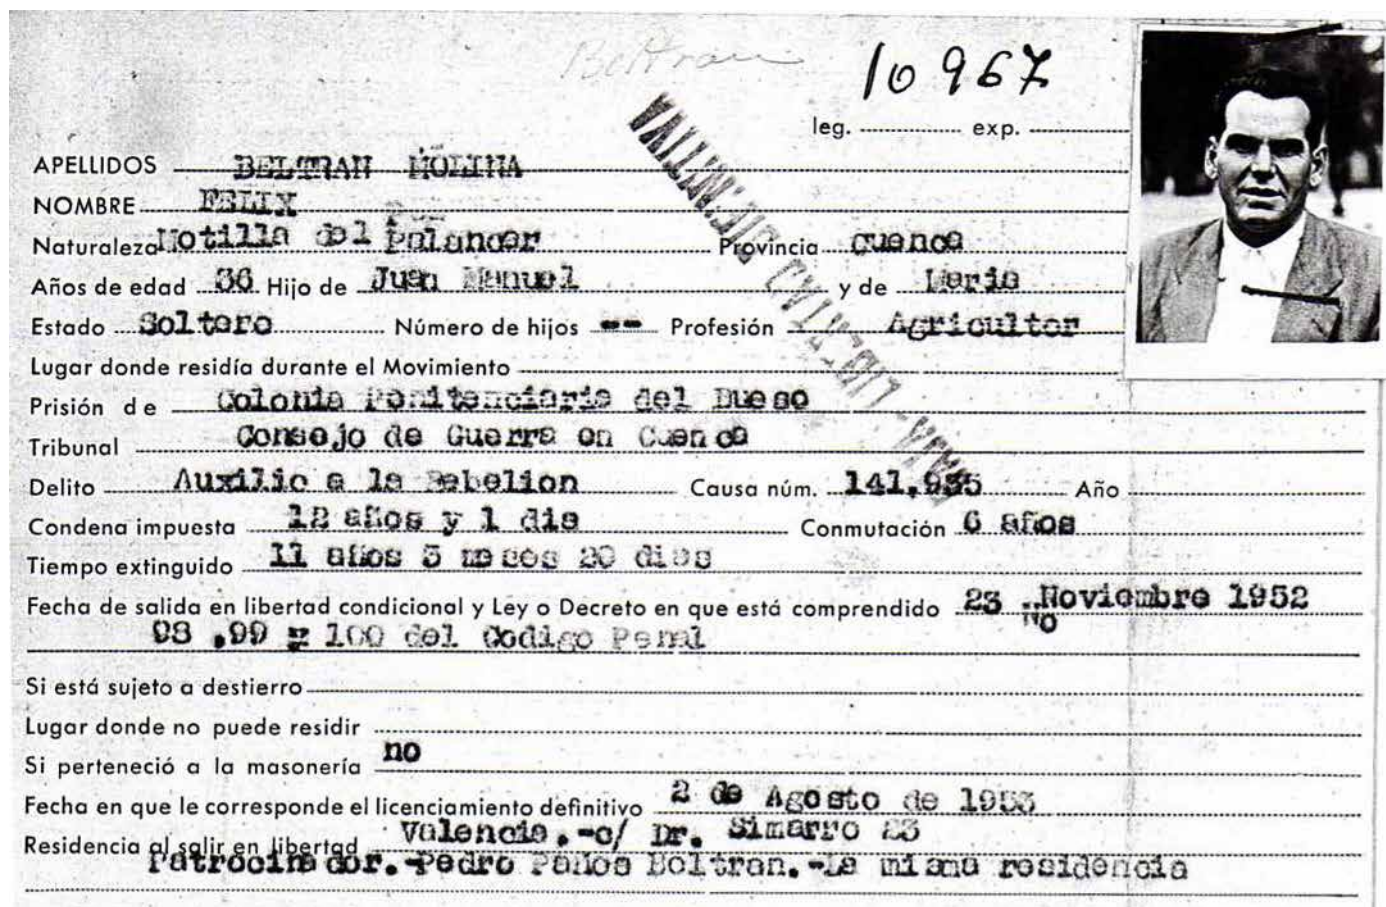 Beltran
10967
leg. exp.
APELLIDOS BELTRAN MOLINA
NOMBRE FELIX
Naturaleza Motilla del Palancar Provincia Cuenca
Años de edad 36 Hijo de Juan Manuel y de Maria
Estado Soltero Número de hijos -- Profesión Agricultor
Lugar donde residía durante el Movimiento
Prisión de Colonia Penitenciaria del Dueso
Tribunal Consejo de Guerra en Cuenca
Delito Auxilio a la Rebelion Causa núm. 141,935 Año
Condena impuesta 12 años y 1 dia Conmutación 6 años
Tiempo extinguido 11 años 3 meses 20 dias
Fecha de salida en libertad condicional y Ley o Decreto en que está comprendido 23 Noviembre 1952
No
98 ,99 100 del Codigo Penal
Si está sujeto a destierro
Lugar donde no puede residir
Si perteneció a la masonería no
Fecha en que le corresponde el licenciamiento definitivo 2 de Agosto de 1953
Residencia al salir en libertad Valencia.-c/ Dr. Simarro 23
Patrocinador.-Pedro Paños Beltran.-La misma residencia